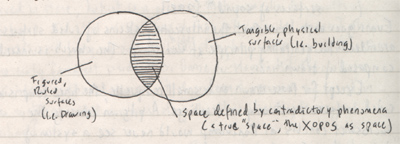 Tangible, physical
surfaces (i.e. building)
Figured,
Ruled
Surfaces
(i.e. Drawing)
Space defined by contradictory phenomena
(a true "space", the XOPOS as space)